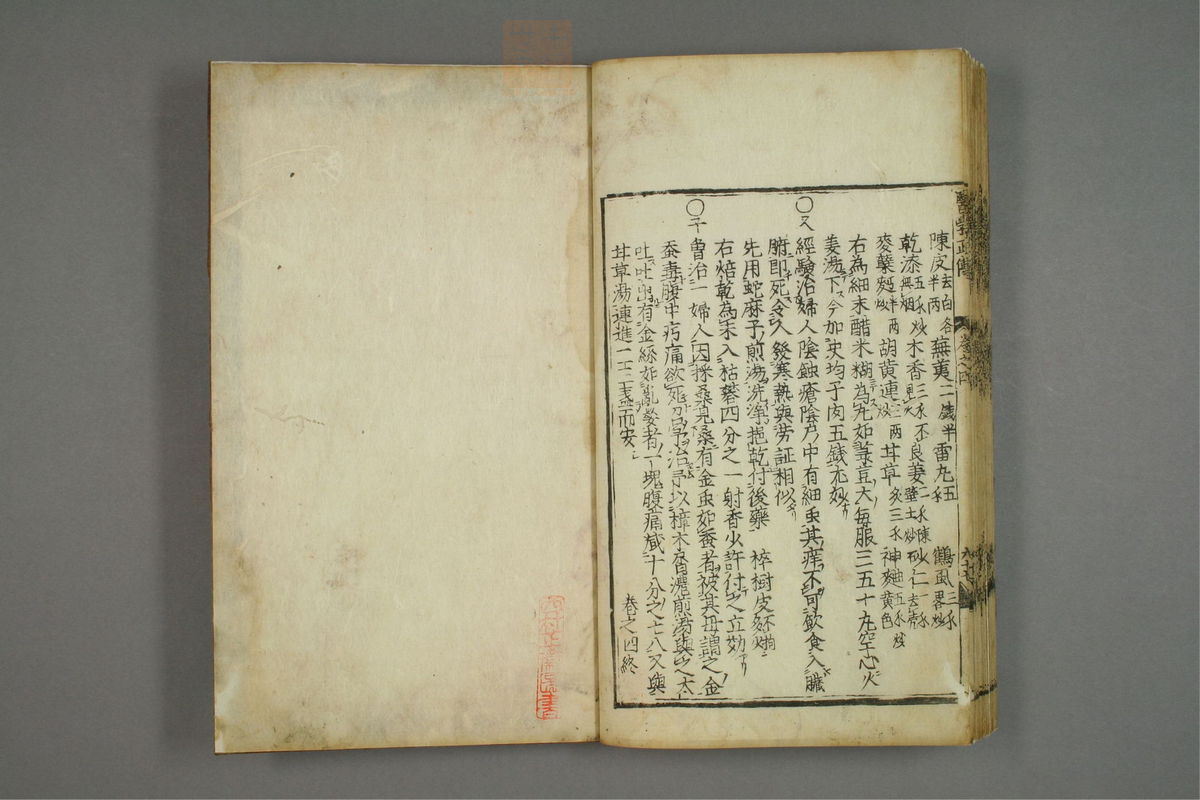 醫學正傳 卷之四 九十七
陳皮去白各半兩 蕪荑二錢半 雷丸五錢 鶴虱二錢畧炒
乾漆五錢炒無烟 木香三錢不見火 良姜二錢陳壁土炒 砂仁一錢去壳
麥蘖麪半兩炒 胡黄連三兩炒 甘草炙三錢 神麯五錢炒黄色
右為細末醋米糊為丸如菉豆大每服三五十丸空心火
姜湯下今加史均子肉五錢尤妙
○又 經驗治婦人陰蝕瘡陰戶中有細虫其痒不可飲食入臟
腑即死令人發寒熱與勞証相似
先用蛇麻子煎湯洗浄挹乾付後藥 梓樹皮不拘多火
右焙乾為末入枯礬四分之一射香少許付之立効
○予 魯治一婦人因採桑見桑有金虫如蚕者被其毋謂之金
蚕毒腹中疞痛欲死召予治予以樟木屑濃煎湯與之大
吐吐出有金絲如乱髮者一塊腹痛减十分之七八又與
甘草湯連進一二盞而安
卷之四終